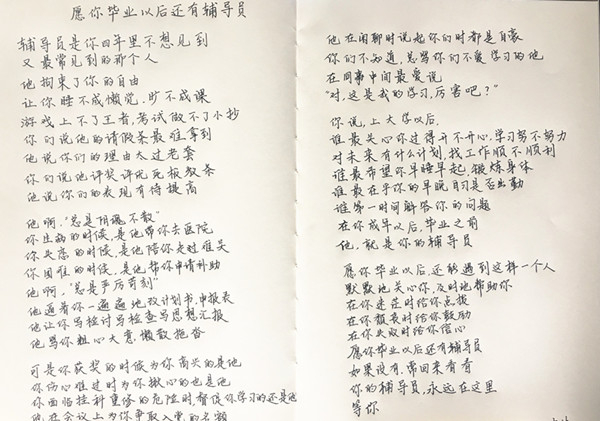 愿你毕业以后还有辅导员
辅导员是你四年里不想见到
又最常见到的那个人
他拘束了你的自由
让你睡不成懒觉,旷不成课
游戏上不了王者,考试做不了小抄
你们说他的请假条最难拿到
他说你们的理由太过老套
你们说他评奖评优死板教条
他说你们的表现有待提高
他啊,“总是阴魂不散”
你生病的时候,是他带你去医院
你失恋的时候,是他陪你走过难关
你困难的时候,是他帮你申请补助
他啊,“总是严厉苛刻”
他逼着你一遍遍地改计划书,申报表
他让你写检讨写检查写思想汇报
他骂你粗心大意,懒散拖沓
可是你获奖的时候为你高兴的是他
你伤心难过时为你揪心的也是他
你面临挂科重修的危险时,督促你学习的还是他
他在会议上为你争取入党的名额
他在闲聊时说起你们时都是自豪
你们不知道,总骂你们不爱学习的他
在同事中间最爱说
“对,这是我的学习,厉害吧?”
你说,上大学以后,
谁最关心你过得开不开心,学习努不努力
对未来有什么计划,找工作顺不顺利
谁最希望你早睡早起,锻炼身体
谁最在乎你的早晚自习是否出勤
谁第一时间解答你的问题
在你成年以后,毕业之前
他,就是你的辅导员
愿你毕业以后,还能遇到这样一个人
默默地关心你,及时地帮助你
在你迷茫时给你点拨
在你颓丧时给你鼓励
在你失败时给你信心
愿你毕业以后还有辅导员
如果没有,常回来看看
你的辅导员,永远在这里
等你